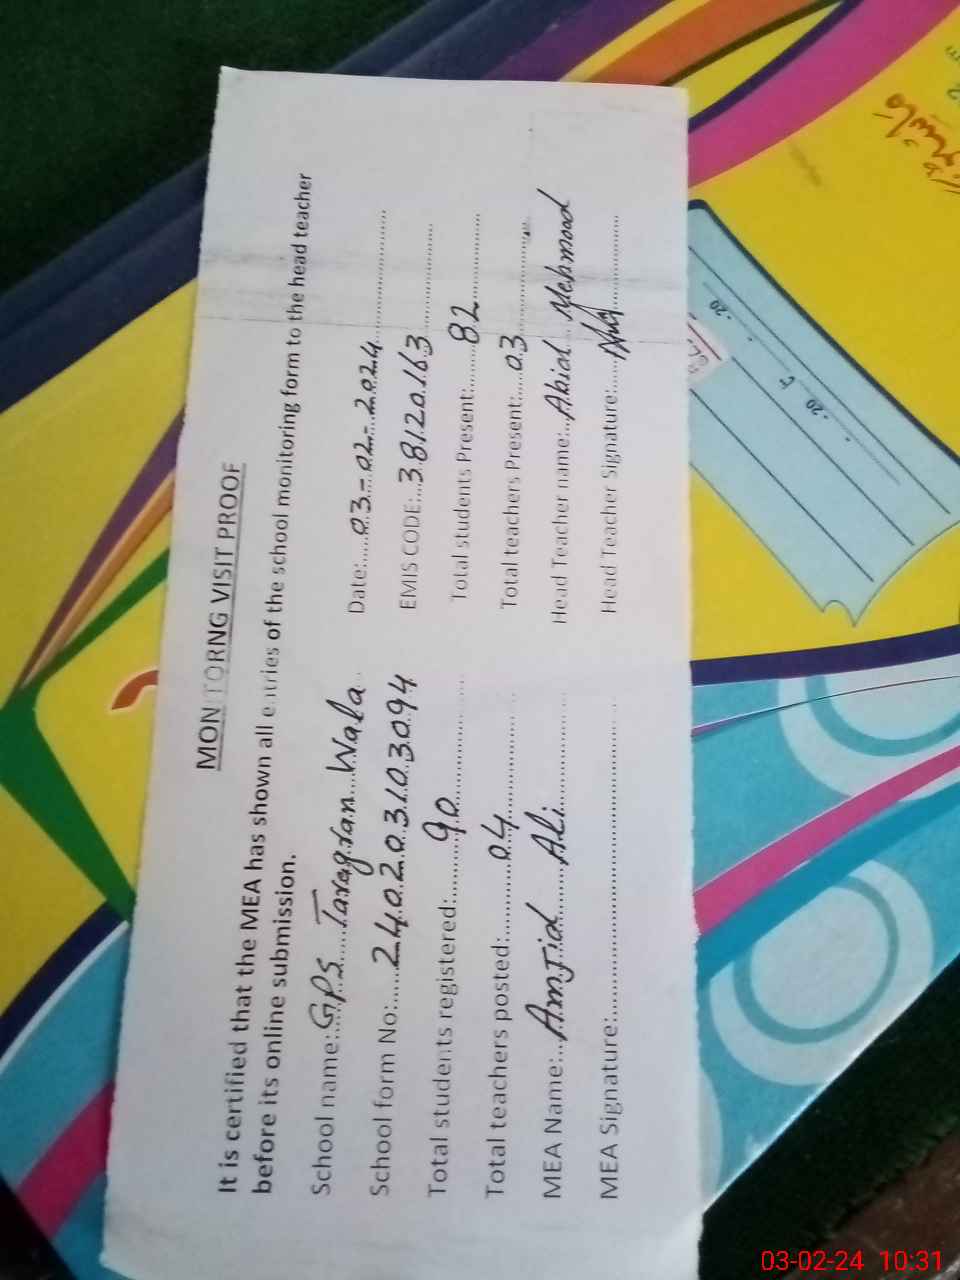 MONITORNG VISIT PROOF
It is certified that the MEA has shown all entries of the school monitoring form to the head teacher
before its online submission.
School name: GPS Taragran Wala Date: 03-02-2024
School form No: 240203103094 EMIS CODE: 38120163
Total students registered: 90 Total students Present: 82
Total teachers posted: 04 Total teachers Present: 03
MEA Name: Amjid Ali Head Teacher name: Abid Mehmood
MEA Signature: Head Teacher Signature:
20
20
03-02-24 10:31